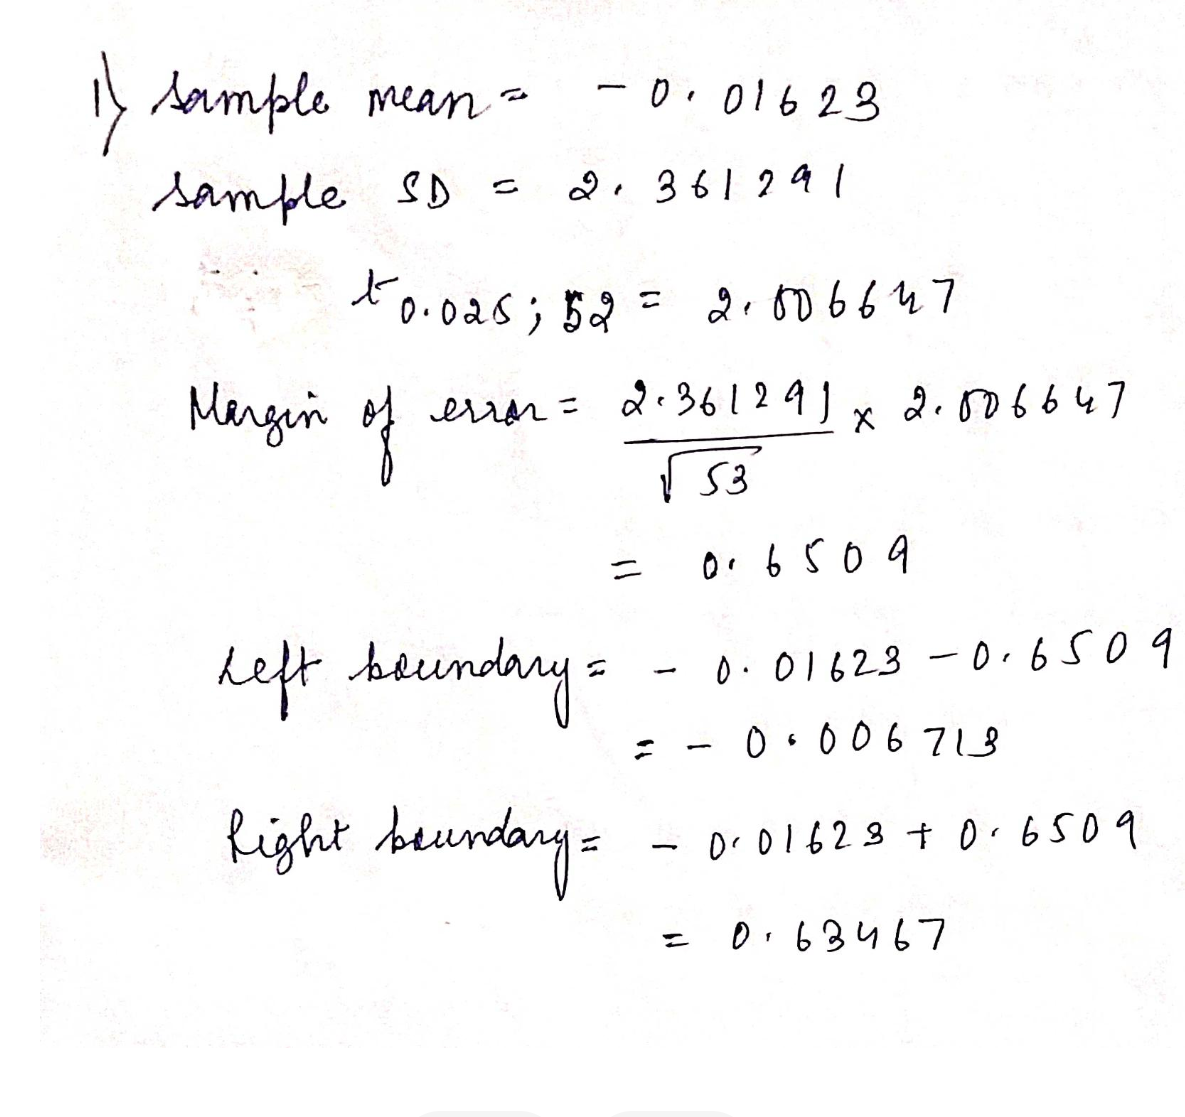 1) Sample mean = - 0.01623
Sample SD = 2.361291
t0.025; 52 = 2.006647
Margin of error = 2.361291 / √53 × 2.006647
= 0.6509
Left boundary = - 0.01623 - 0.6509
= - 0.006713
Right boundary = - 0.01623 + 0.6509
= 0.63467